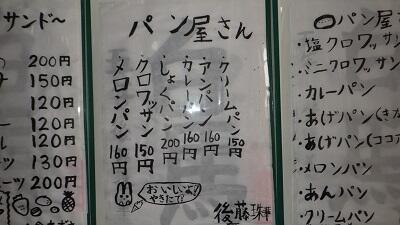 サンド〜
200円
150円
120円
120円
120円
130円
200円
パン屋さん
クリームパン 150円
アンパン 160円
カレーパン 160円
しょくパン 200円
クロワッサン 150円
メロンパン 160円
おいしいよ!
やきたて!
後藤
パン屋
・塩クロワッサ
・ミニクロワッサ
・カレーパン
・あげパン(きな
・あげパン(ココア
・メロンパン
・あんパン
・クリームパン